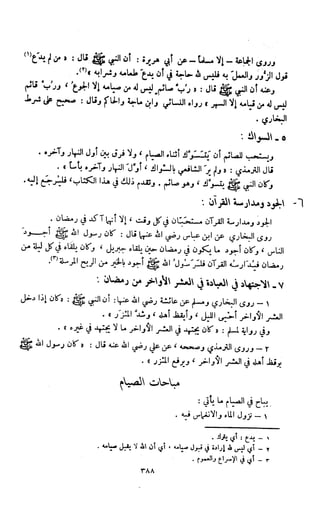 وروى الجماعة - إلا مسلماً - عن أبي هريرة : أن النبي ﷺ قال : « من لم يدع (١)
قول الزُّور والعمل به فليس لله حاجة في أن يدع طعامه وشرابه » (٢) .
وعنه أن النبي ﷺ قال : « رُبَّ صائم ليس له من صيامه إلا الجوع ، ورُبَّ قائم
ليس له من قيامه إلا السهر » رواه النسائي وابن ماجة والحاكم وقال : صحيح على شرط
البخاري .
٥ - السواك :
ويستحب للصائم أن يتسوّك أثناء الصيام ، ولا فرق بين أول النهار وآخره .
قال الترمذي : « ولم يرَ الشافعي بالسواك ، أوّل النهار وآخره بأساً » .
وكان النبي ﷺ يتسوّك ، وهو صائم . وتقدم ذلك في هذا الكتاب ، فليُرجع إليه .
٦ - الجود ومدارسة القرآن :
الجود ومدارسة القرآن مستحبّان في كل وقت ، إلا أنهما آكد في رمضان .
روى البخاري عن ابن عباس رضي الله عنهما قال : كان رسول الله ﷺ أجود
الناس ، وكان أجود ما يكون في رمضان حين يلقاه جبريل ، وكان يلقاه في كل ليلة من
رمضان فيُدارسُه القرآن فلرَسُولُ الله ﷺ أجود بالخير من الريح المرسلة (٣) .
٧ - الاجتهاد في العبادة في العشر الأواخر من رمضان :
١ - روى البخاري ومسلم عن عائشة رضي الله عنها : أن النبي ﷺ : « كان إذا دخل
العشر الأواخر أحيى الليل ، وأيقظ أهله ، وشدَّ المئزر » .
وفي رواية لمسلم : « كان يجتهد في العشر الأواخر ما لا يجتهد في غيره » .
٢ - وروى الترمذي وصححه ، عن علي رضي الله عنه قال : « كان رسول الله ﷺ
يوقظ أهله في العشر الأواخر ، ويرفع المئزر » .
مباحات الصيام
يباح في الصيام ما يأتي :
١ - نزول الماء والانغماس فيه .
١ - يدع : أي يترك .
٢ - أي ليس لله إرادة في قبول صيامه . أي أن الله لا يقبل صيامه .
٣ - أي في الإسراع والعموم .
٣٨٨